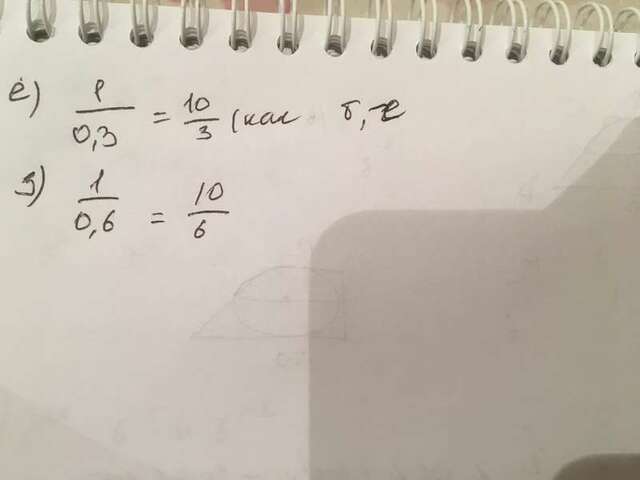 ё)
1/0,3 = 10/3 (как б, ж
з)
1/0,6 = 10/6